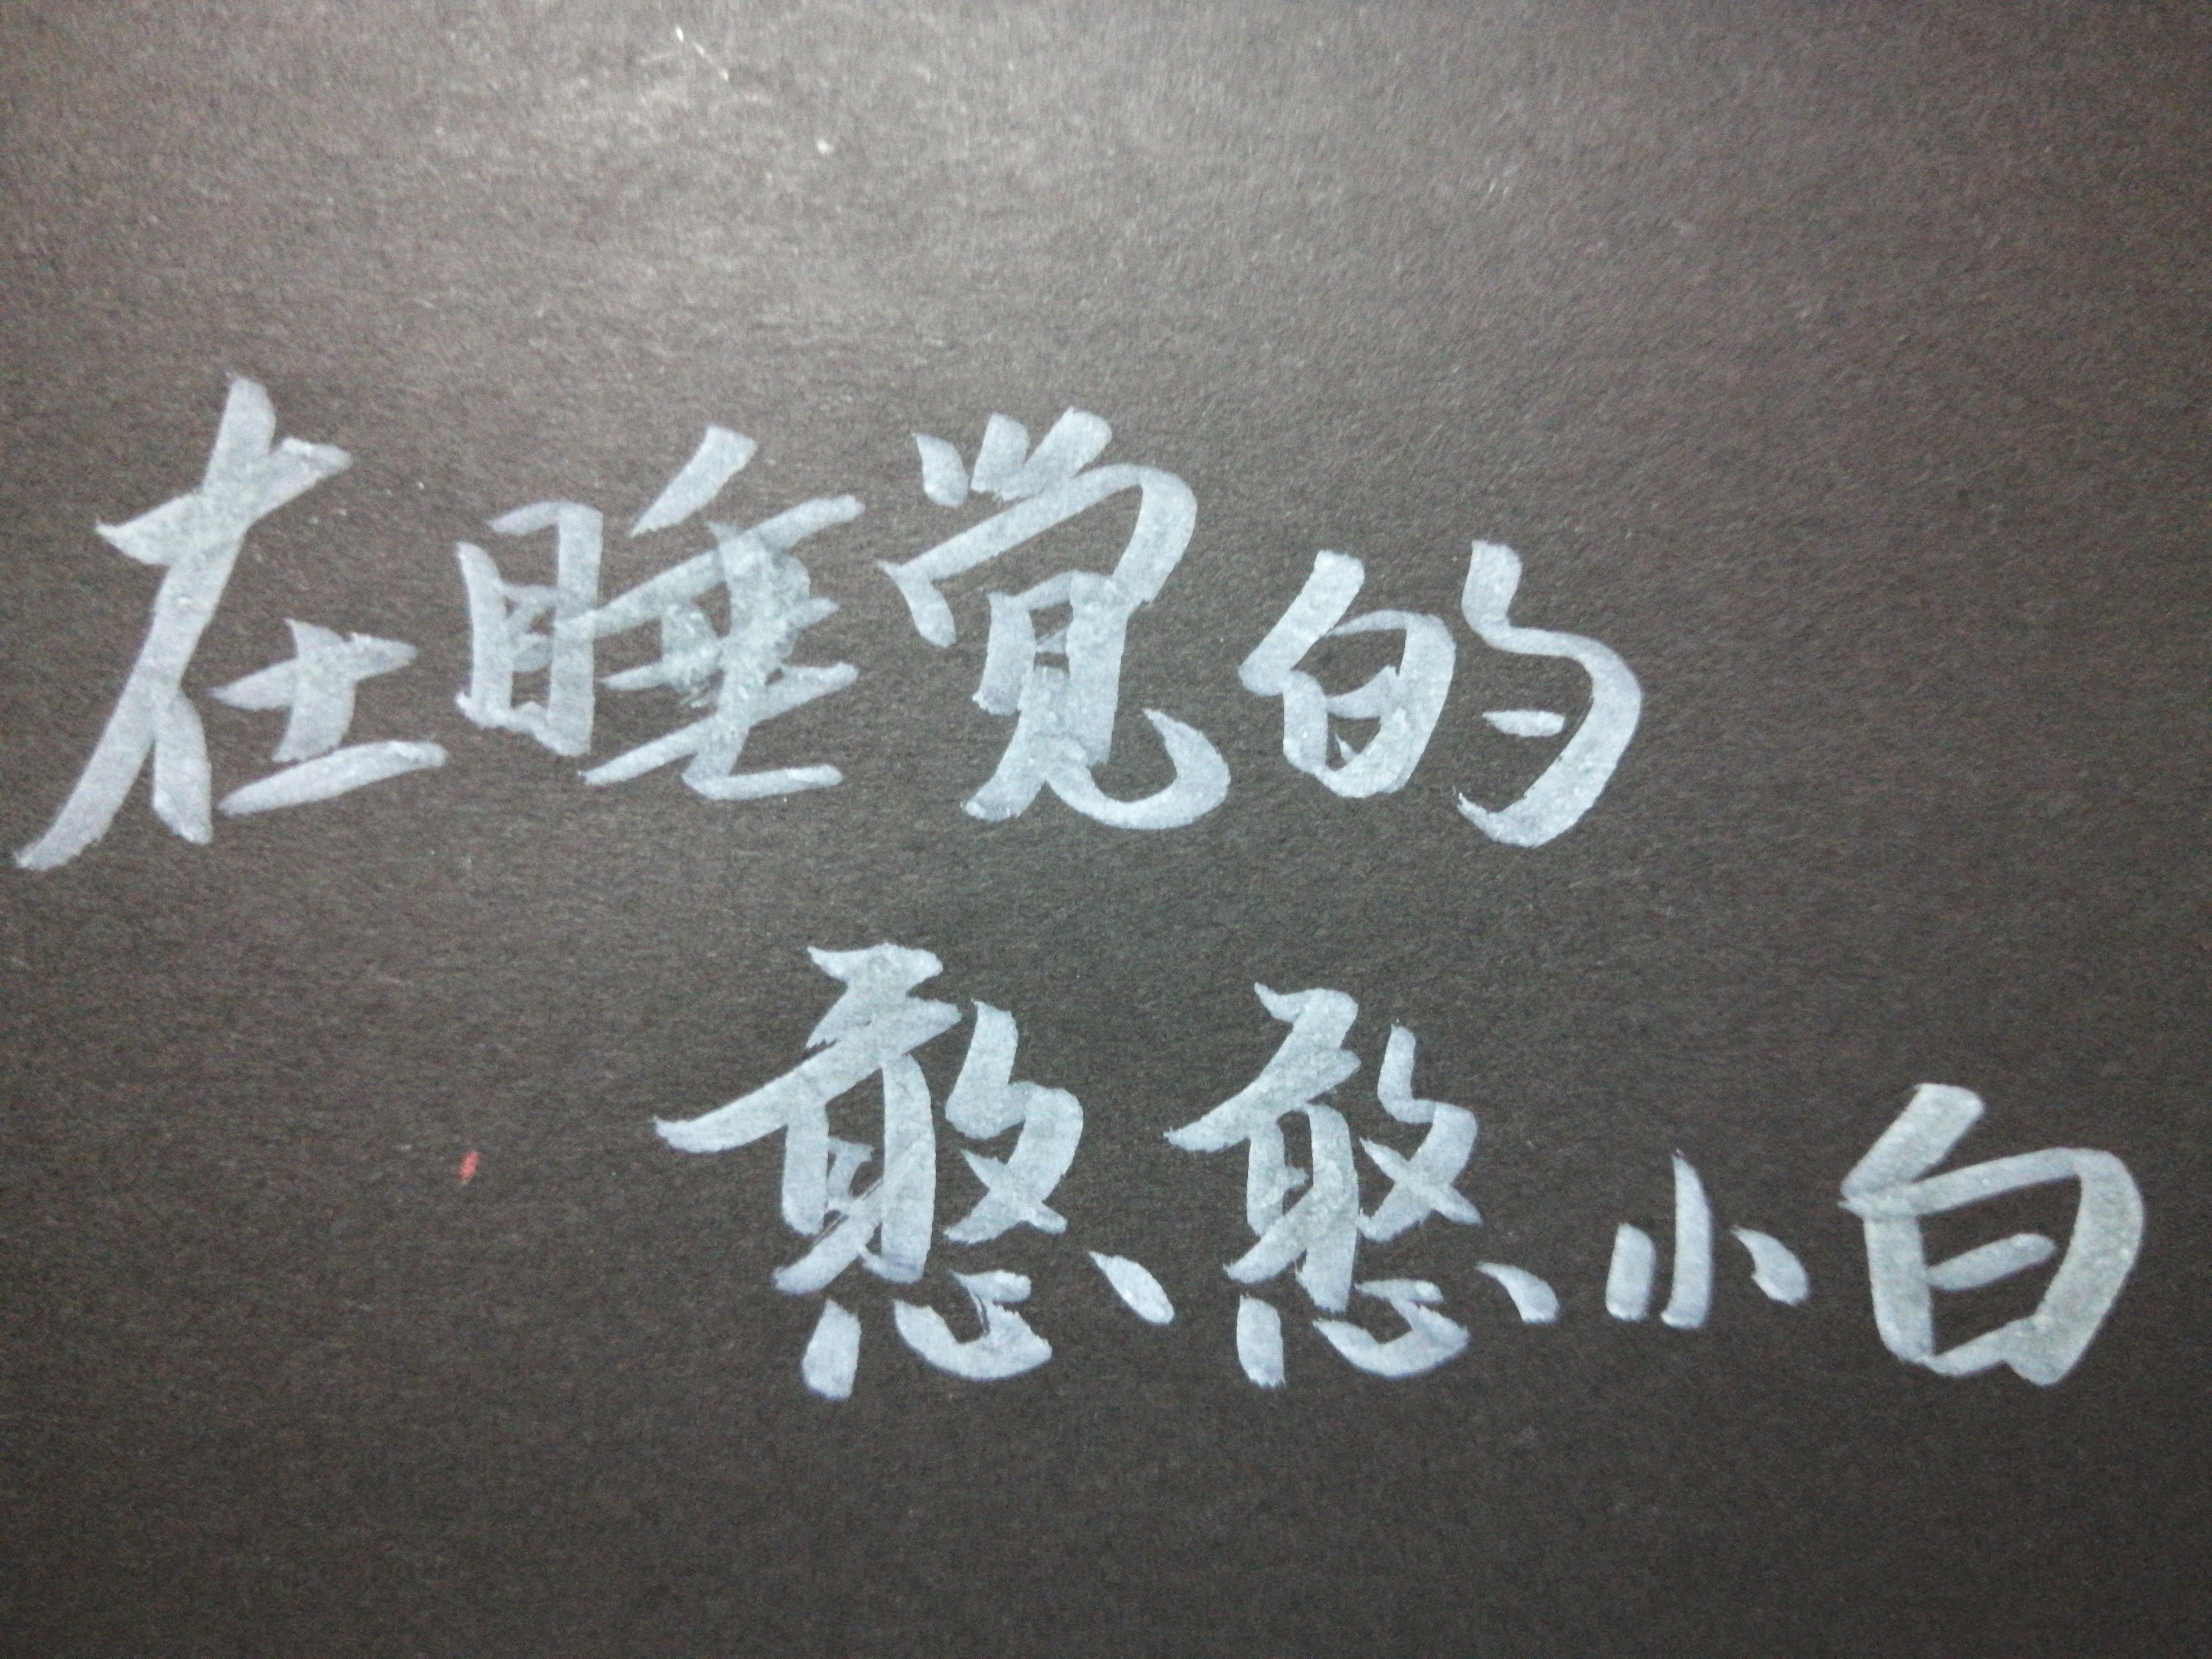 在睡觉的
憨憨小白